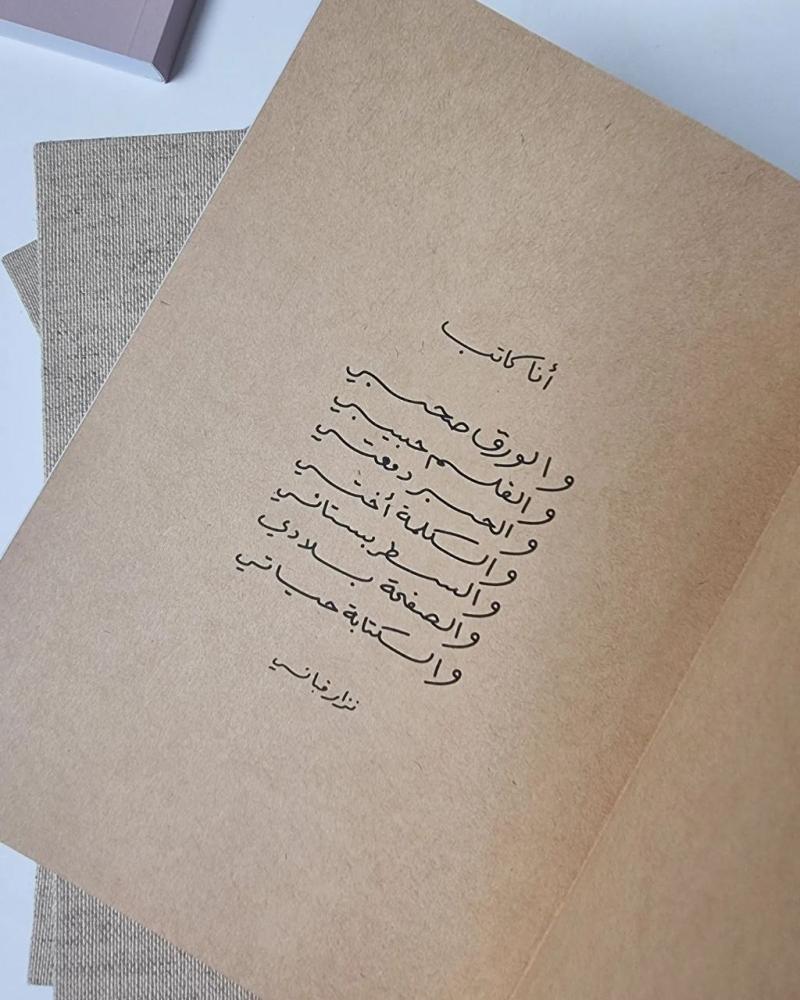 أنا كاتب
والورق صحبي
والقلم حبيبي
والحبر دمعتي
والكلمة أختي
والسطر بستاني
والصفحة بلادي
والكتابة حياتي
نزار قباني